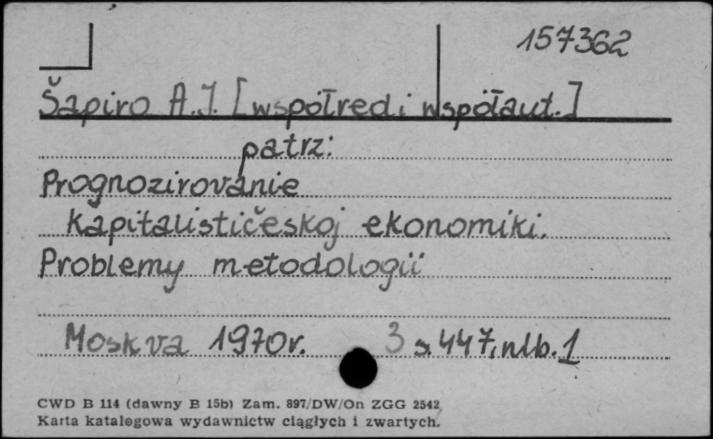 157362
Šapiro A.J. [współred. i współaut.]
patrz:
Prognozirovanie
kapitalističeskoj ekonomiki.
Problemy metodologii
Moskva 1970r. 3 s. 447, nlb. 1
CWD B 114 (dawny B 15b) Zam. 897/DW/On ZGG 2542
Karta katalogowa wydawnictw ciągłych i zwartych.